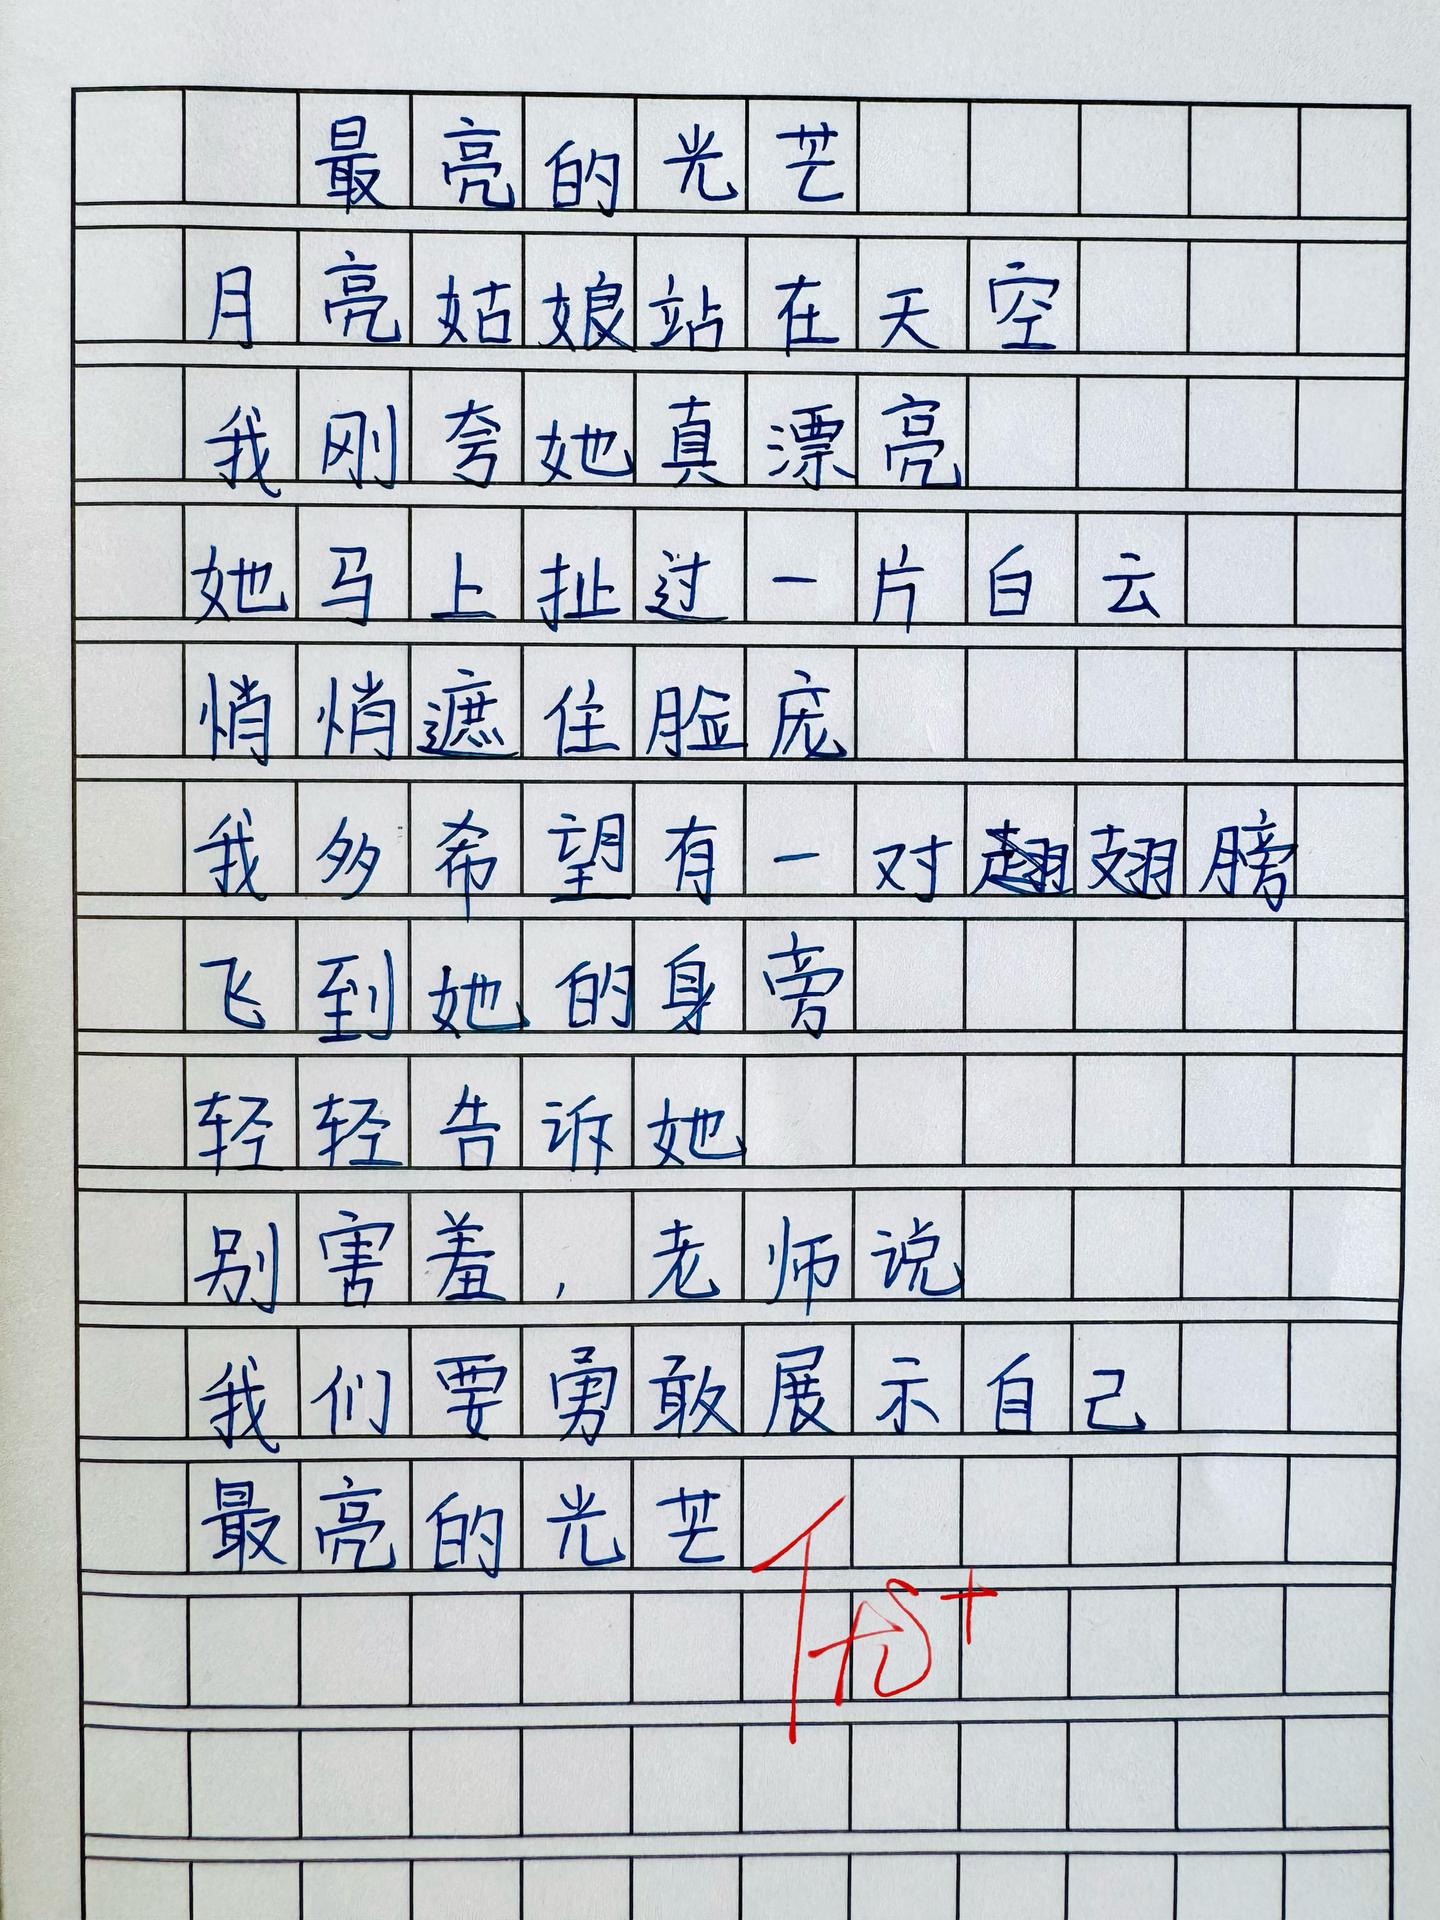 最亮的光芒
月亮姑娘站在天空
我刚夸她真漂亮
她马上扯过一片白云
悄悄遮住脸庞
我多希望有一对翅膀
飞到她的身旁
轻轻告诉她
别害羞，老师说
我们要勇敢展示自己
最亮的光芒
优+